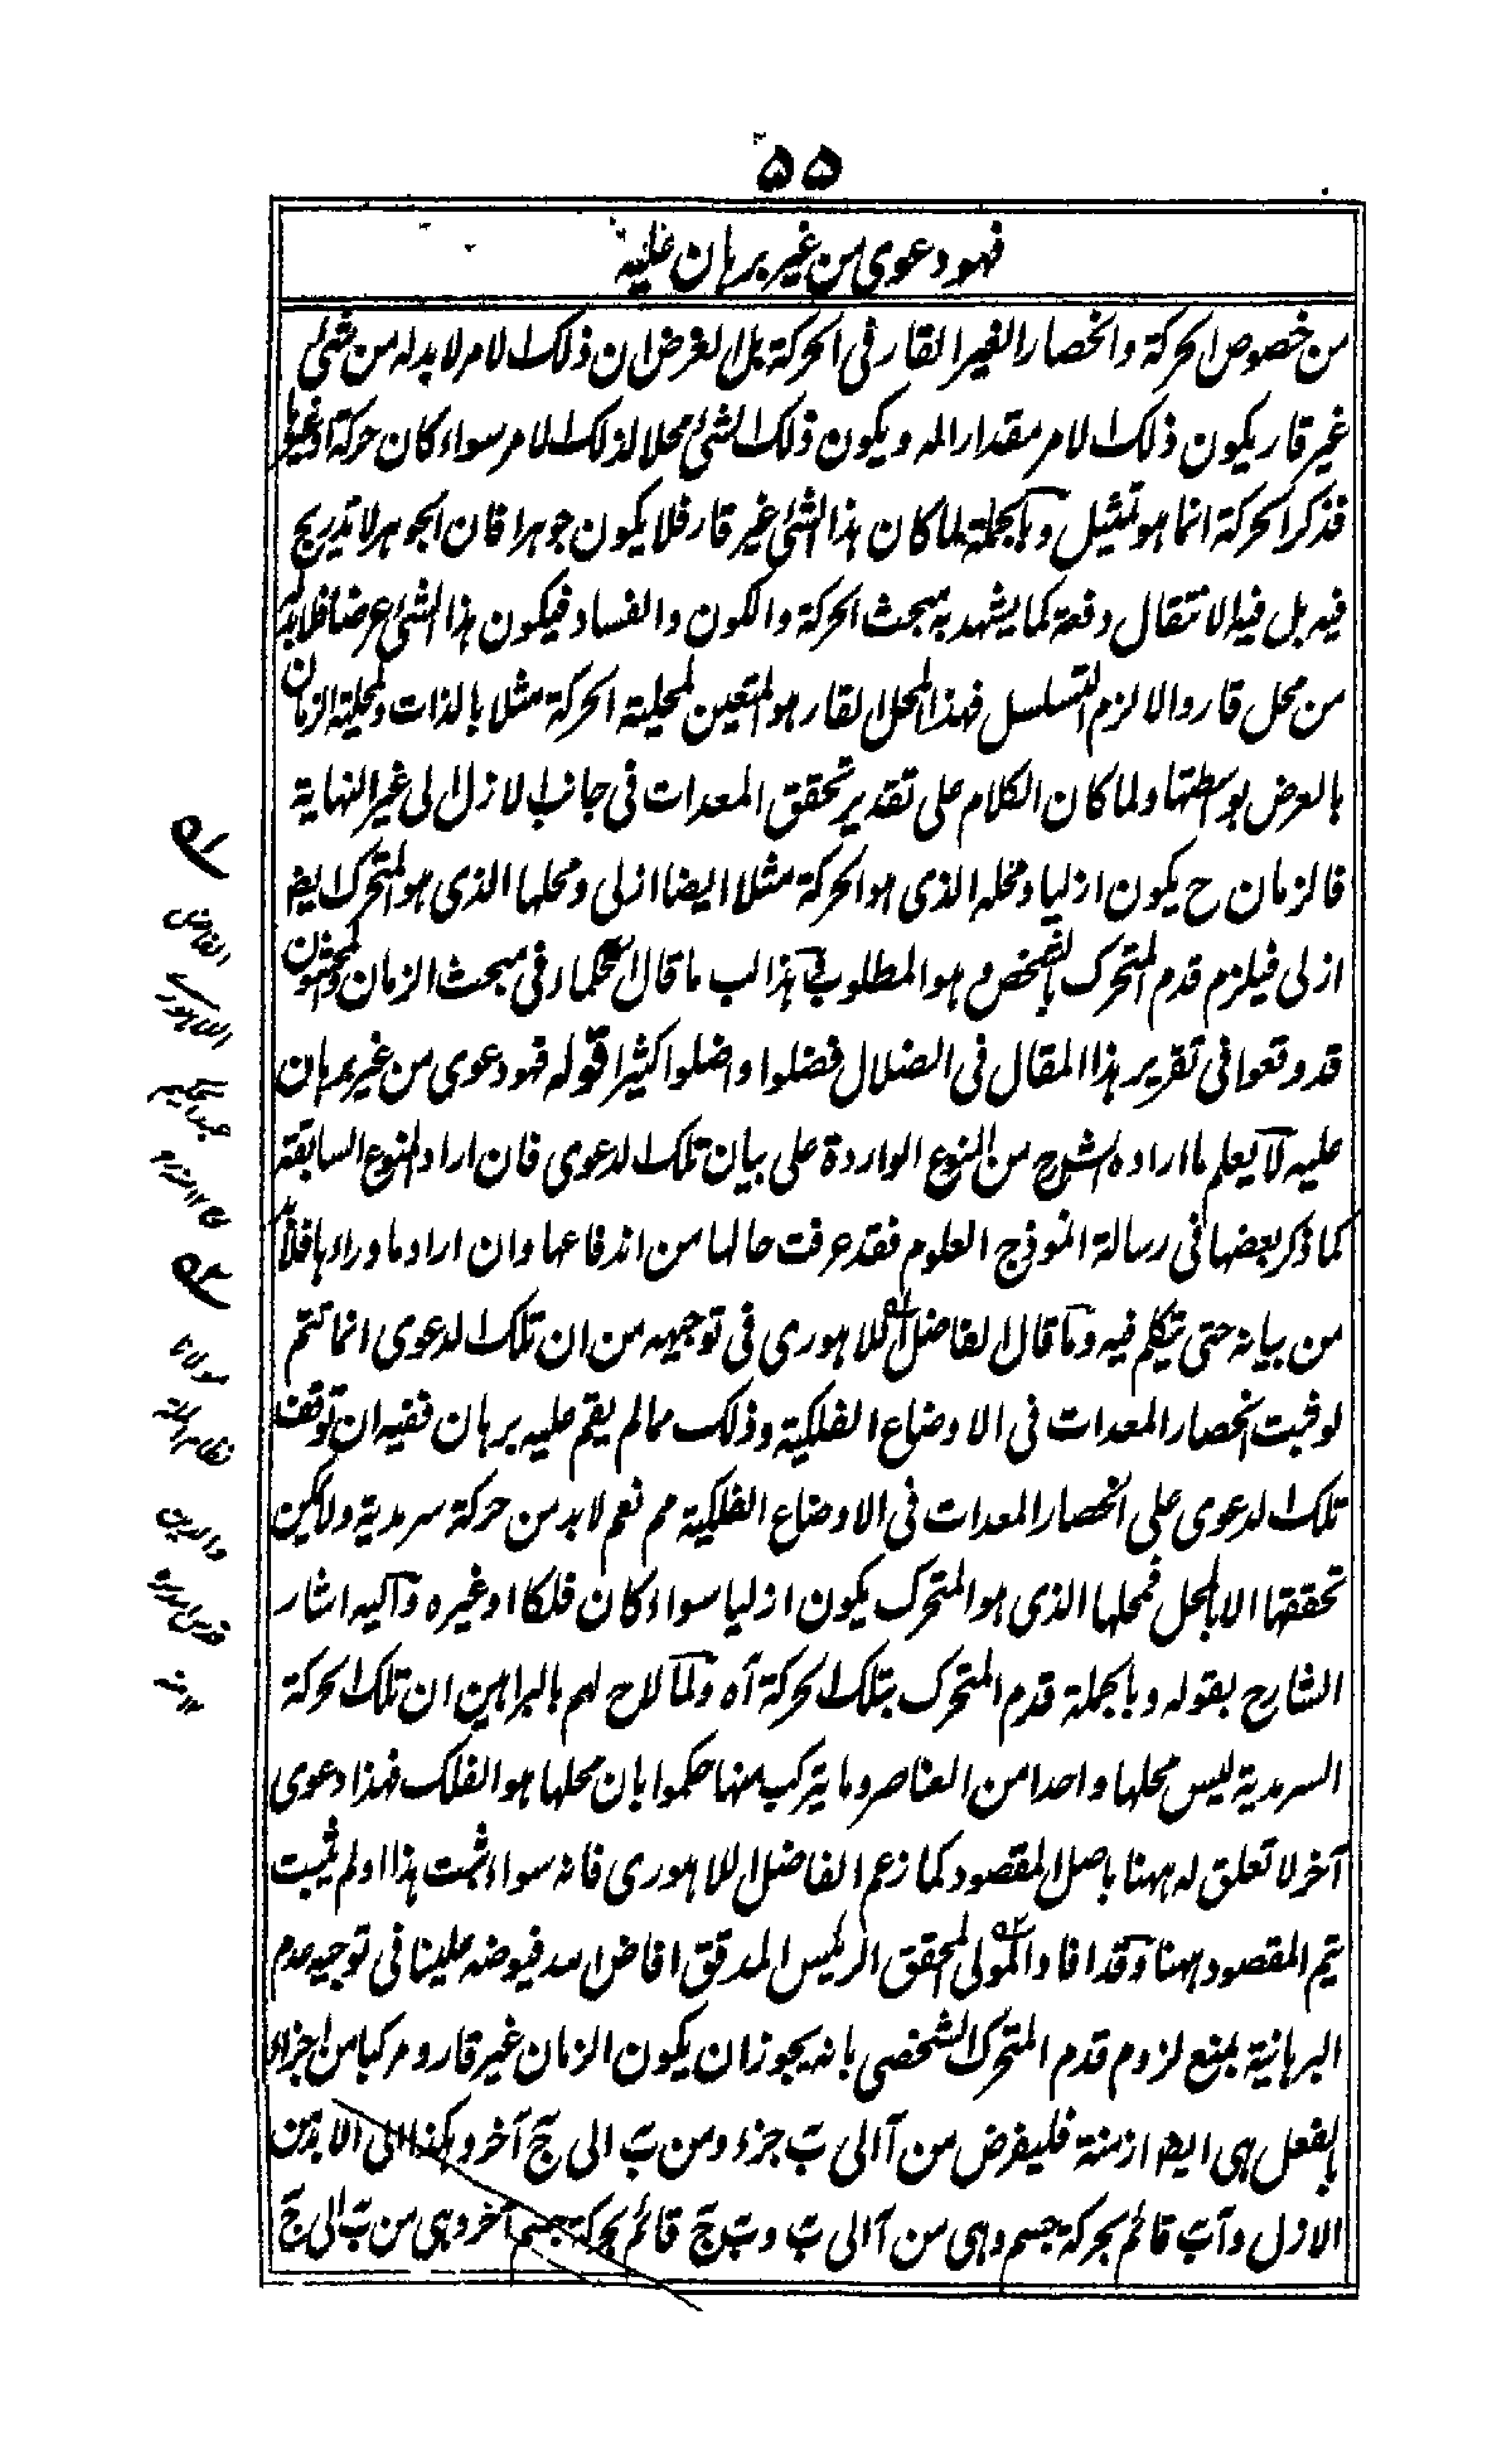 ۵۵
فهو دعوى من غير برهان عليه
من خصوص الحركة وانحصار الغير القار فى الحركة بل الغرض ان ذلك الامر لا بد له من شئ
غير قار يكون ذلك الامر مقدارا له ويكون ذلك الشئ محلا لذلك الامر سواء كان حركة او غيرها
فذكر الحركة انما هو تمثيل وبالجملة لما كان هذا الشئ غير قار فلا يكون جوهرا فان الجوهر لا تدريج
فيه بل فيه الانتقال دفعة كما يشهد به مبحث الحركة والكون والفساد فيكون هذا الشئ عرضا فلا بد له
من محل قار والا لزم التسلسل فهذا المحل القار هو المتعين لمحلية الحركة مثلا بالذات ولمحلية الزمان
بالعرض بواسطتها ولما كان الكلام على تقدير تحقق المعدات فى جانب الازل الى غير النهاية
فالزمان ح يكون ازليا ومحله الذى هو الحركة مثلا ايضا ازلى ومحلها الذى هو المتحرك ايضا
ازلى فيلزم قدم المتحرك بالشخص وهو المطلوب هذا لب ما قال الحكماء فى مبحث الزمان والمحشون
قد وقعوا فى تقرير هذا المقال فى الضلال فضلوا واضلوا كثيرا قوله فهو دعوى من غير برهان
عليه لا يعلم ما اراده الشارح من المنوع الواردة على بيان تلك الدعوى فان اراد المنوع السابقة
كما ذكر بعضها فى رسالة انموذج العلوم فقد عرفت حالها من اندفاعها وان اراد ما وراءها فلا بد
من بيانه حتى يتكلم فيه وما قال الفاضل اللاهورى فى توجيهه من ان تلك الدعوى انما تتم
لو ثبت انحصار المعدات فى الاوضاع الفلكية وذلك مما لم يقم عليه برهان ففيه ان توقف
تلك الدعوى على انحصار المعدات فى الاوضاع الفلكية مم نعم لا بد من حركة سرمدية ولا يمكن
تحققها الا بالمحل فمحلها الذى هو المتحرك يكون ازليا سواء كان فلكا او غيره واليه اشار
الشارح بقوله وبالجملة قدم المتحرك بتلك الحركة آه ولما لاح لهم بالبراهين ان تلك الحركة
السرمدية ليس محلها واحدا من العناصر وما يتركب منها حكموا بان محلها هو الفلك فهذا دعوى
آخر لا تعلق له ههنا باصل المقصود كما زعم الفاضل اللاهورى فانه سواء ثبت هذا او لم يثبت
يتم المقصود ههنا وقد افاد المولى المحقق الرئيس المدقق افاض الله فيوضه علينا فى توجيه عدم
البرهانية بمنع لزوم قدم المتحرك الشخصى بانه يجوز ان يكون الزمان غير قار ومركبا من اجزاء
بالفعل هى ايضا ازمنة فليفرض من آ الى ب جزء ومن ب الى ج آخر وهكذا الى الابد من
الازل و آب قائم بحركة جسم وهى من آ الى ب و ب ج قائم بحركة جسم آخر وهى من ب الى ج
الفاضل
اللاهورى
مولانا